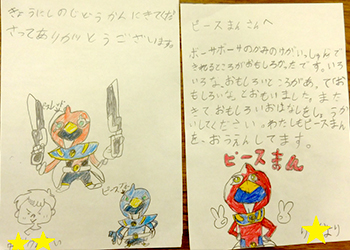 きょうにしのじどうかんにきてくだ
さってありがとうございます。
ピースマん
ピースまん さんへ
ボーサボーサのかみのけがいっしゅんで
きせるところがおもしろかったです。いろ
いろな、おもしろいところがあって「お
もしろいな。」とおもいました。また
きておもしろいおはなしをし。うか
いしてください。わたしもピースまん
を、おうえんしてます。
ピースまん
より